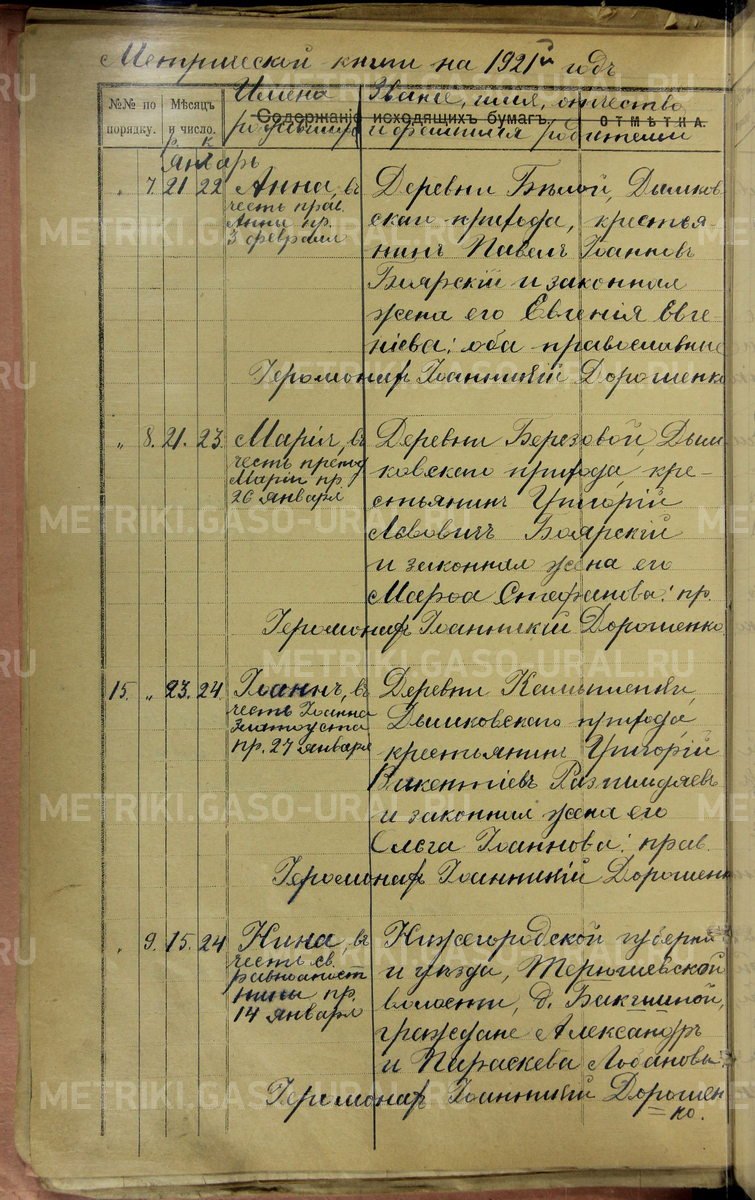 Метрической книги на 1921й годъ
№№ по порядку.
Мѣсяцъ и число.
Р. К.
Имена родившихся
Званіе, имя, отчество и фамилія родителей
Содержаніе исходящихъ бумагъ.
ОТМѢТКА.
Январь
„ 7. 21 22 Анна, въ честь прав. Анны пр. 3 февраля
Деревни Бѣлой, Дымков-
скаго прихода, крестья-
нинъ Павелъ Іоанновъ
Боярскій и законная
жена его Евгенія Евге-
ніева; оба православные
Іеромонахъ Іоанникій Дорошенко
„ 8. 21. 23. Марія, въ честь препод. Маріи пр. 26 января
Деревни Березовой, Дым-
ковскаго прихода, кре-
стьянинъ Григорій
Львовичъ Боярскій
и законная жена его
Марѳа Стефанова: пр.
Іеромонахъ Іоанникій Дорошенко
15. „ 23. 24. Іоаннъ, въ честь Іоанна Златоуста пр. 27 января
Деревни Камышенки,
Дымковскаго прихода,
крестьянинъ Григорій
Викентіевъ
и законная жена его
Ольга Іоаннова: прав.
Іеромонахъ Іоанникій Дорошенко
„ 9. 15. 24 Нина, въ честь св. равноапост. Нины пр. 14 января
Нижегородской губерніи
и уѣзда, Терюшевской
волости, д.
граждане Александръ
и Параскева Лобановы
Іеромонахъ Іоанникій Дорошен-
ко.
METRIKI.GASO-URAL.RU